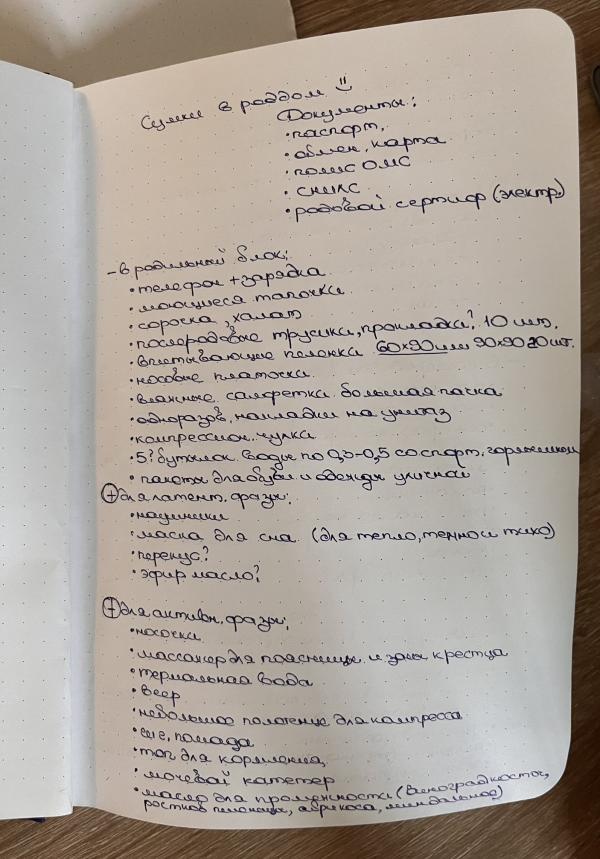 Сумки в роддом
Документы:
• паспорт,
• обмен. карта
• полис ОМС
• снилс
• родовой сертиф (электр.)
– в родильный блок:
• телефон + зарядка
• моющиеся тапочки
• сорочка, халат
• послеродовые трусики, прокладки? 10 шт.
• впитывающие пеленки 60×90 или 90×90 20 шт.
• носовые платочки
• влажные салфетки большая пачка
• одноразов. накладки на унитаз
• компрессион. чулки
• 5? бутылок воды по 0,3-0,5 со спорт. горлышком
• пакеты для обуви и одежды уличной
+ для латент. фазы:
• наушники
• маска для сна (для тепло, темно и тихо)
• перекус?
• эфир масло?
+ для активн. фазы:
• носочки
• массажер для поясницы и зоны крестца
• термальная вода
• веер
• небольшое полотенце для компресса
• гиг. помада
• топ для кормления,
• мочевой катетер
• масло для промежности (виноград. косточ,
ростков пшеницы, абрикоса, миндальное)